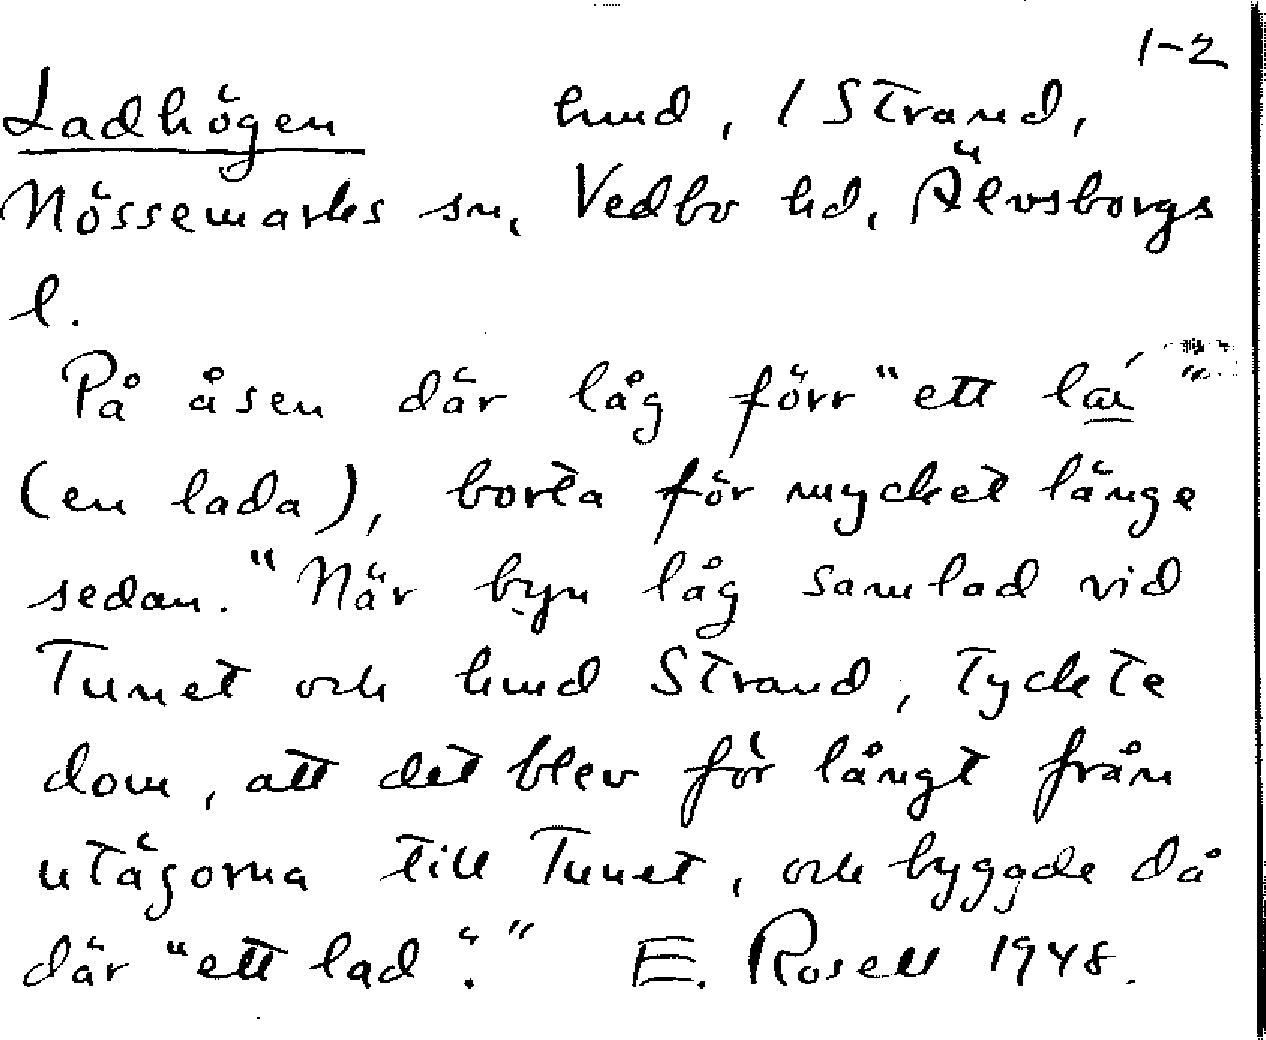 1-2
Ladhögen hmd, 1 Strand,
Nössemarks sn, Vedbo hd, Älvsborgs
l.
På åsen där låg förr "ett lá"
(en lada), borta för mycket länge
sedan. "När byn låg samlad vid
Tunet och hmd Strand, tyckte
dom, att det blev för långt från
utägorna till Tunet, och byggde då
där "ett lad"." E. Rosell 1948.